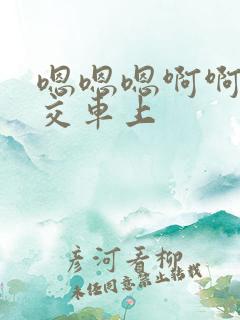 嗯嗯嗯啊啊
交车上
彦河看柳
未经同意禁止转载